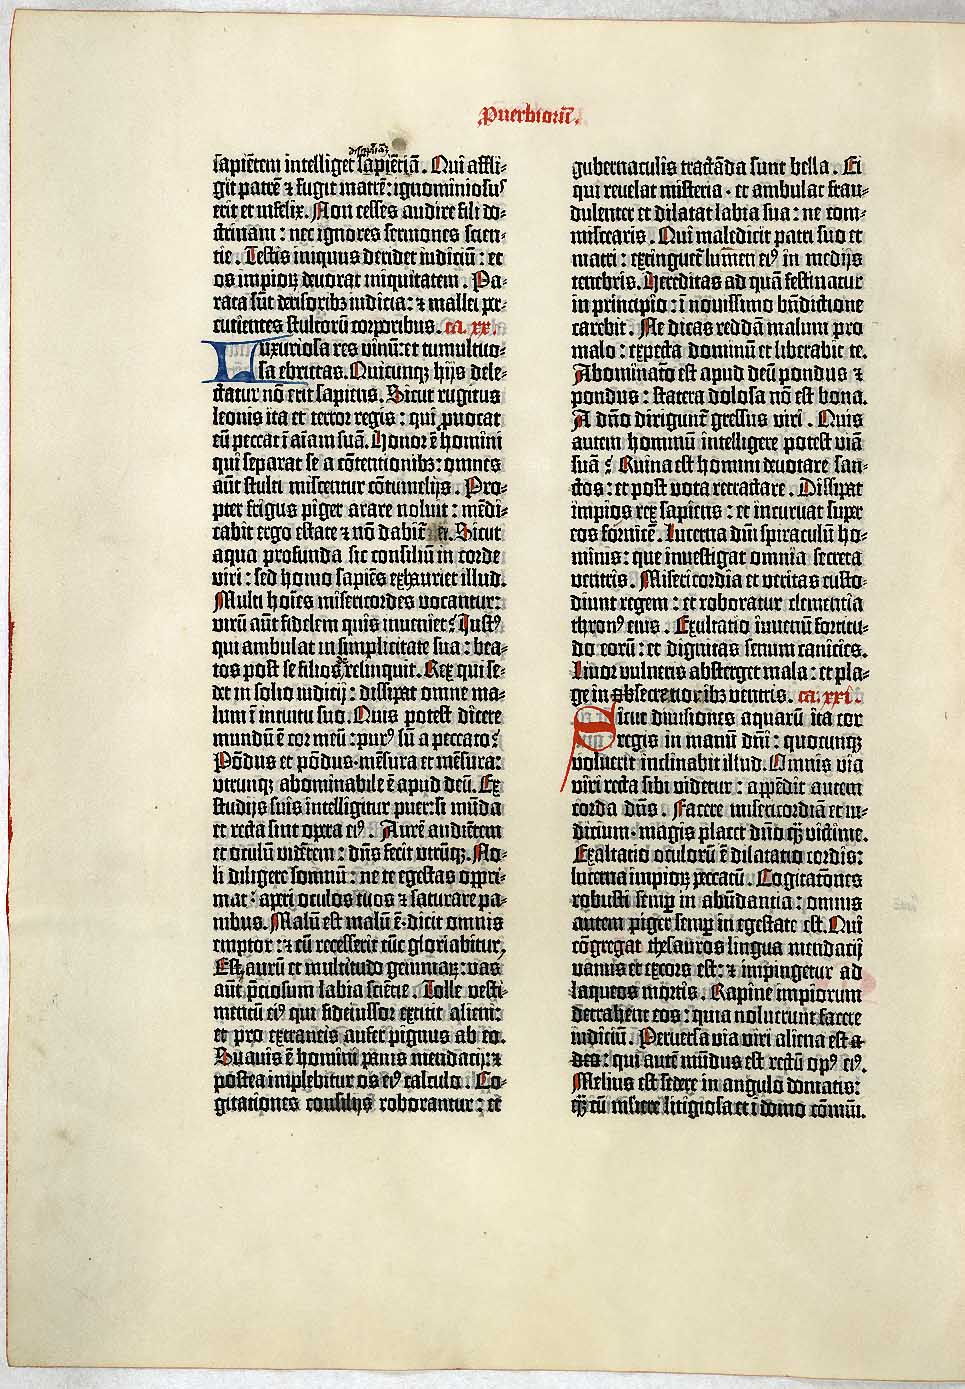 Puerbiorū.
disciplinā
sapiētem intelliget sapiētiā. Qui affli-
git patrē ⁊ fugit matrē: ignominiosus
erit et infelix. Non cesses audire fili do-
ctrinam: nec ignores sermones scien-
tie. Testis iniquus deridet iudiciū: et
os impioꝝ deuorat iniquitatem. Pa-
rata sūt derisoribꝫ iudicia: ⁊ mallei per-
cutientes stultorū corporibus. ca. xx.
Luxuriosa res vinū: et tumultuo-
sa ebrietas. Quicunqꝫ hijs dele-
ctatur nō erit sapiens. Sicut rugitus
leonis ita et terror regis: qui ꝓuocat
eū peccat ī aīam suā. Honor ē homini
qui separat se a cōtentionibꝫ: omnes
aūt stulti miscentur cōtumelijs. Pro-
pter frigus piger arare noluit: mēdi-
cabit ergo estate ⁊ nō dabit̄ ei. Sicut
aqua profunda sic consiliū in corde
viri: sed homo sapiēs exhauriet illud.
Multi hoīes misericordes vocantur:
virū aūt fidelem quis inueniet? Iustꝰ
qui ambulat in simplicitate sua: bea-
tos post se filios relinquit. Rex qui se-
det in solio iudicij: dissipat omne ma-
lum ī intuitu suo. Quis potest dicere
mundū ē cor meū: purꝰ sū a peccato?
Pōdus et pōdus·mēsura et mēsura:
vtrunqꝫ abominabile ē apud deū. Ex
studijs suis intelligitur puer: si mūda
et recta sint opera eiꝰ. Aurē audientem
et oculū vidētem: dn̄s fecit vtrūqꝫ. No-
li diligere somnū: ne te egestas oppri-
mat: aperi oculos tuos ⁊ saturare pa-
nibus. Malū est malū ē·dicit omnis
emptor: ⁊ cū recesserit tūc gloriabitur.
Est aurū et multitudo gemmaꝝ: vas
aūt p̄ciosum labia sciētie. Tolle vesti-
mentū eiꝰ qui fideiussor extitit alieni:
et pro extraneis aufer pignus ab eo.
Suauis ē homini panis mendacij: ⁊
postea implebitur os eiꝰ calculo. Co-
gitationes consilijs roborantur: et
gubernaculis tractāda sunt bella. Ei
qui reuelat misteria·et ambulat frau-
dulenter et dilatat labia sua: ne com-
miscearis. Qui maledicit patri suo et
matri: extinguet̄ lumen eiꝰ in medijs
tenebris. Hereditas ad quā festinatur
in principio: ī nouissimo bn̄dictione
carebit. Ne dicas reddā malum pro
malo: expecta dominū et liberabit te.
Abominatō est apud deū pondus ⁊
pondus: statera dolosa nō est bona.
A dn̄o dirigunt̄ gressus viri. Quis
autem hominū intelligere potest viā
suā? Ruina est homini deuotare san-
ctos: et post vota retractare. Dissipat
impios rex sapiens: et incuruat super
eos fornicē. Lucerna dn̄i spiraculū ho-
minis: que inuestigat omnia secreta
ventris. Misericordia et veritas custo-
diunt regem: et roboratur clementia
thronꝰ eius. Exultatio iuuenū fortitu-
do eorū: et dignitas senum canicies.
Liuor vulneris absterget mala: et pla-
ge in secretioribꝫ ventris. ca. xxi.
Sicut diuisiones aquarū ita cor
regis in manū dn̄i: quocunqꝫ
voluerit inclinabit illud. Omnis via
viri recta sibi videtur: appēdit autem
corda dn̄s. Facere misericordiā et iu-
dicium·magis placet dn̄o qꝫ victime.
Exaltatio oculorū ē dilatatio cordis:
lucerna impioꝝ peccatū. Cogitatōnes
robusti semꝑ in abūdantia: omnis
autem piger semꝑ in egestate est. Qui
cōgregat thesauros lingua mendacij
vanus et excors est: ⁊ impingetur ad
laqueos mortis. Rapine impiorum
detrahent eos: quia noluerunt facere
iudiciū. Peruersa via viri aliena est a
deo: qui autē mūdus est rectū opꝰ eiꝰ.
Melius est sedere in angulo domatis:
qꝫ cū muliere litigiosa et ī domo cōmūi.